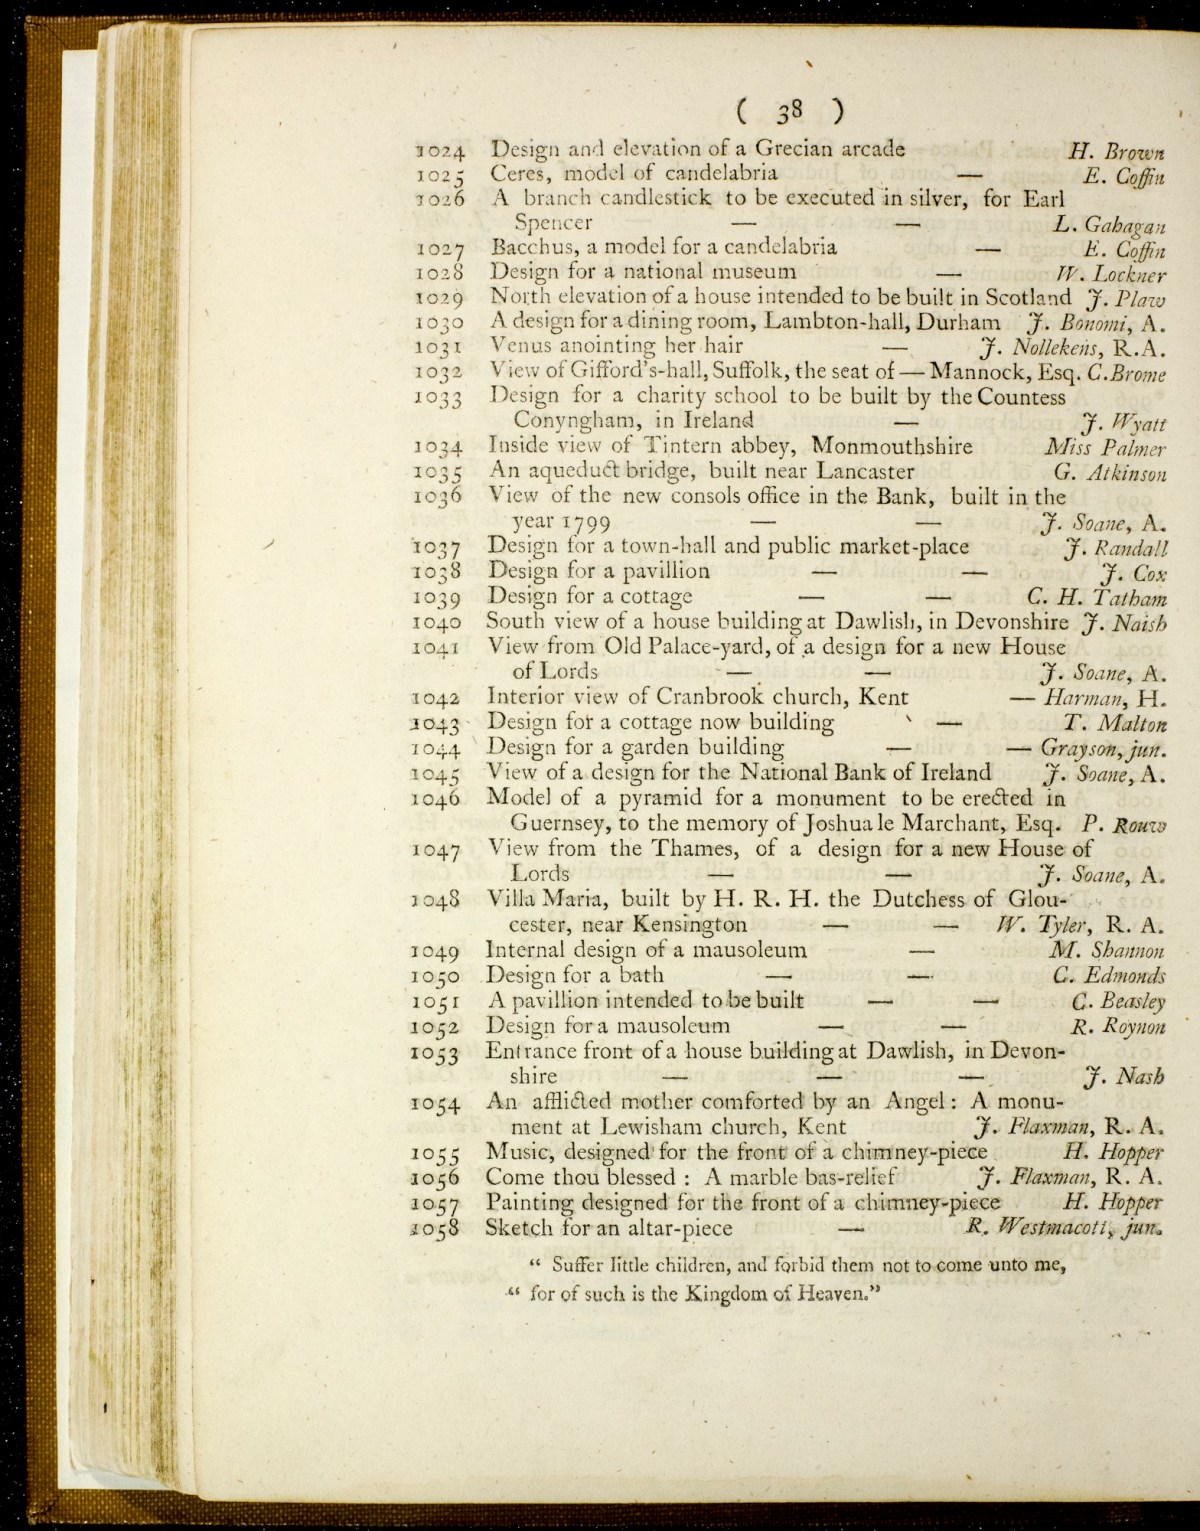 ( 38 )
1024 Design and elevation of a Grecian arcade H. Brown
1025 Ceres, model of candelabria — E. Coffin
1026 A branch candlestick to be executed in silver, for Earl
Spencer — — L. Gahagan
1027 Bacchus, a model for a candelabria — E. Coffin
1028 Design for a national museum — W. Lockner
1029 North elevation of a house intended to be built in Scotland J. Plaw
1030 A design for a dining room, Lambton-hall, Durham J. Bonomi, A.
1031 Venus anointing her hair — J. Nollekens, R.A.
1032 View of Gifford's-hall, Suffolk, the seat of — Mannock, Esq. C. Brome
1033 Design for a charity school to be built by the Countess
Conyngham, in Ireland — J. Wyatt
1034 Inside view of Tintern abbey, Monmouthshire Miss Palmer
1035 An aqueduct bridge, built near Lancaster G. Atkinson
1036 View of the new consols office in the Bank, built in the
year 1799 — — J. Soane, A.
1037 Design for a town-hall and public market-place J. Randall
1038 Design for a pavillion — — J. Cox
1039 Design for a cottage — — C. H. Tatham
1040 South view of a house building at Dawlish, in Devonshire J. Naish
1041 View from Old Palace-yard, of a design for a new House
of Lords — — J. Soane, A.
1042 Interior view of Cranbrook church, Kent — Harman, H.
1043 Design for a cottage now building — T. Malton
1044 Design for a garden building — — Grayson, jun.
1045 View of a design for the National Bank of Ireland J. Soane, A.
1046 Model of a pyramid for a monument to be erected in
Guernsey, to the memory of Joshua le Marchant, Esq. P. Rouw
1047 View from the Thames, of a design for a new House of
Lords — — J. Soane, A.
1048 Villa Maria, built by H. R. H. the Dutchess of Glou-
cester, near Kensington — — W. Tyler, R. A.
1049 Internal design of a mausoleum — M. Shannon
1050 Design for a bath — — C. Edmonds
1051 A pavillion intended to be built — — C. Beasley
1052 Design for a mausoleum — — R. Roynon
1053 Entrance front of a house building at Dawlish, in Devon-
shire — — — J. Nash
1054 An afflicted mother comforted by an Angel: A monu-
ment at Lewisham church, Kent J. Flaxman, R. A.
1055 Music, designed for the front of a chimney-piece H. Hopper
1056 Come thou blessed : A marble bas-relief J. Flaxman, R. A.
1057 Painting designed for the front of a chimney-piece H. Hopper
1058 Sketch for an altar-piece — R. Westmacott, jun.
“ Suffer little children, and forbid them not to come unto me,
“ for of such is the Kingdom of Heaven.”